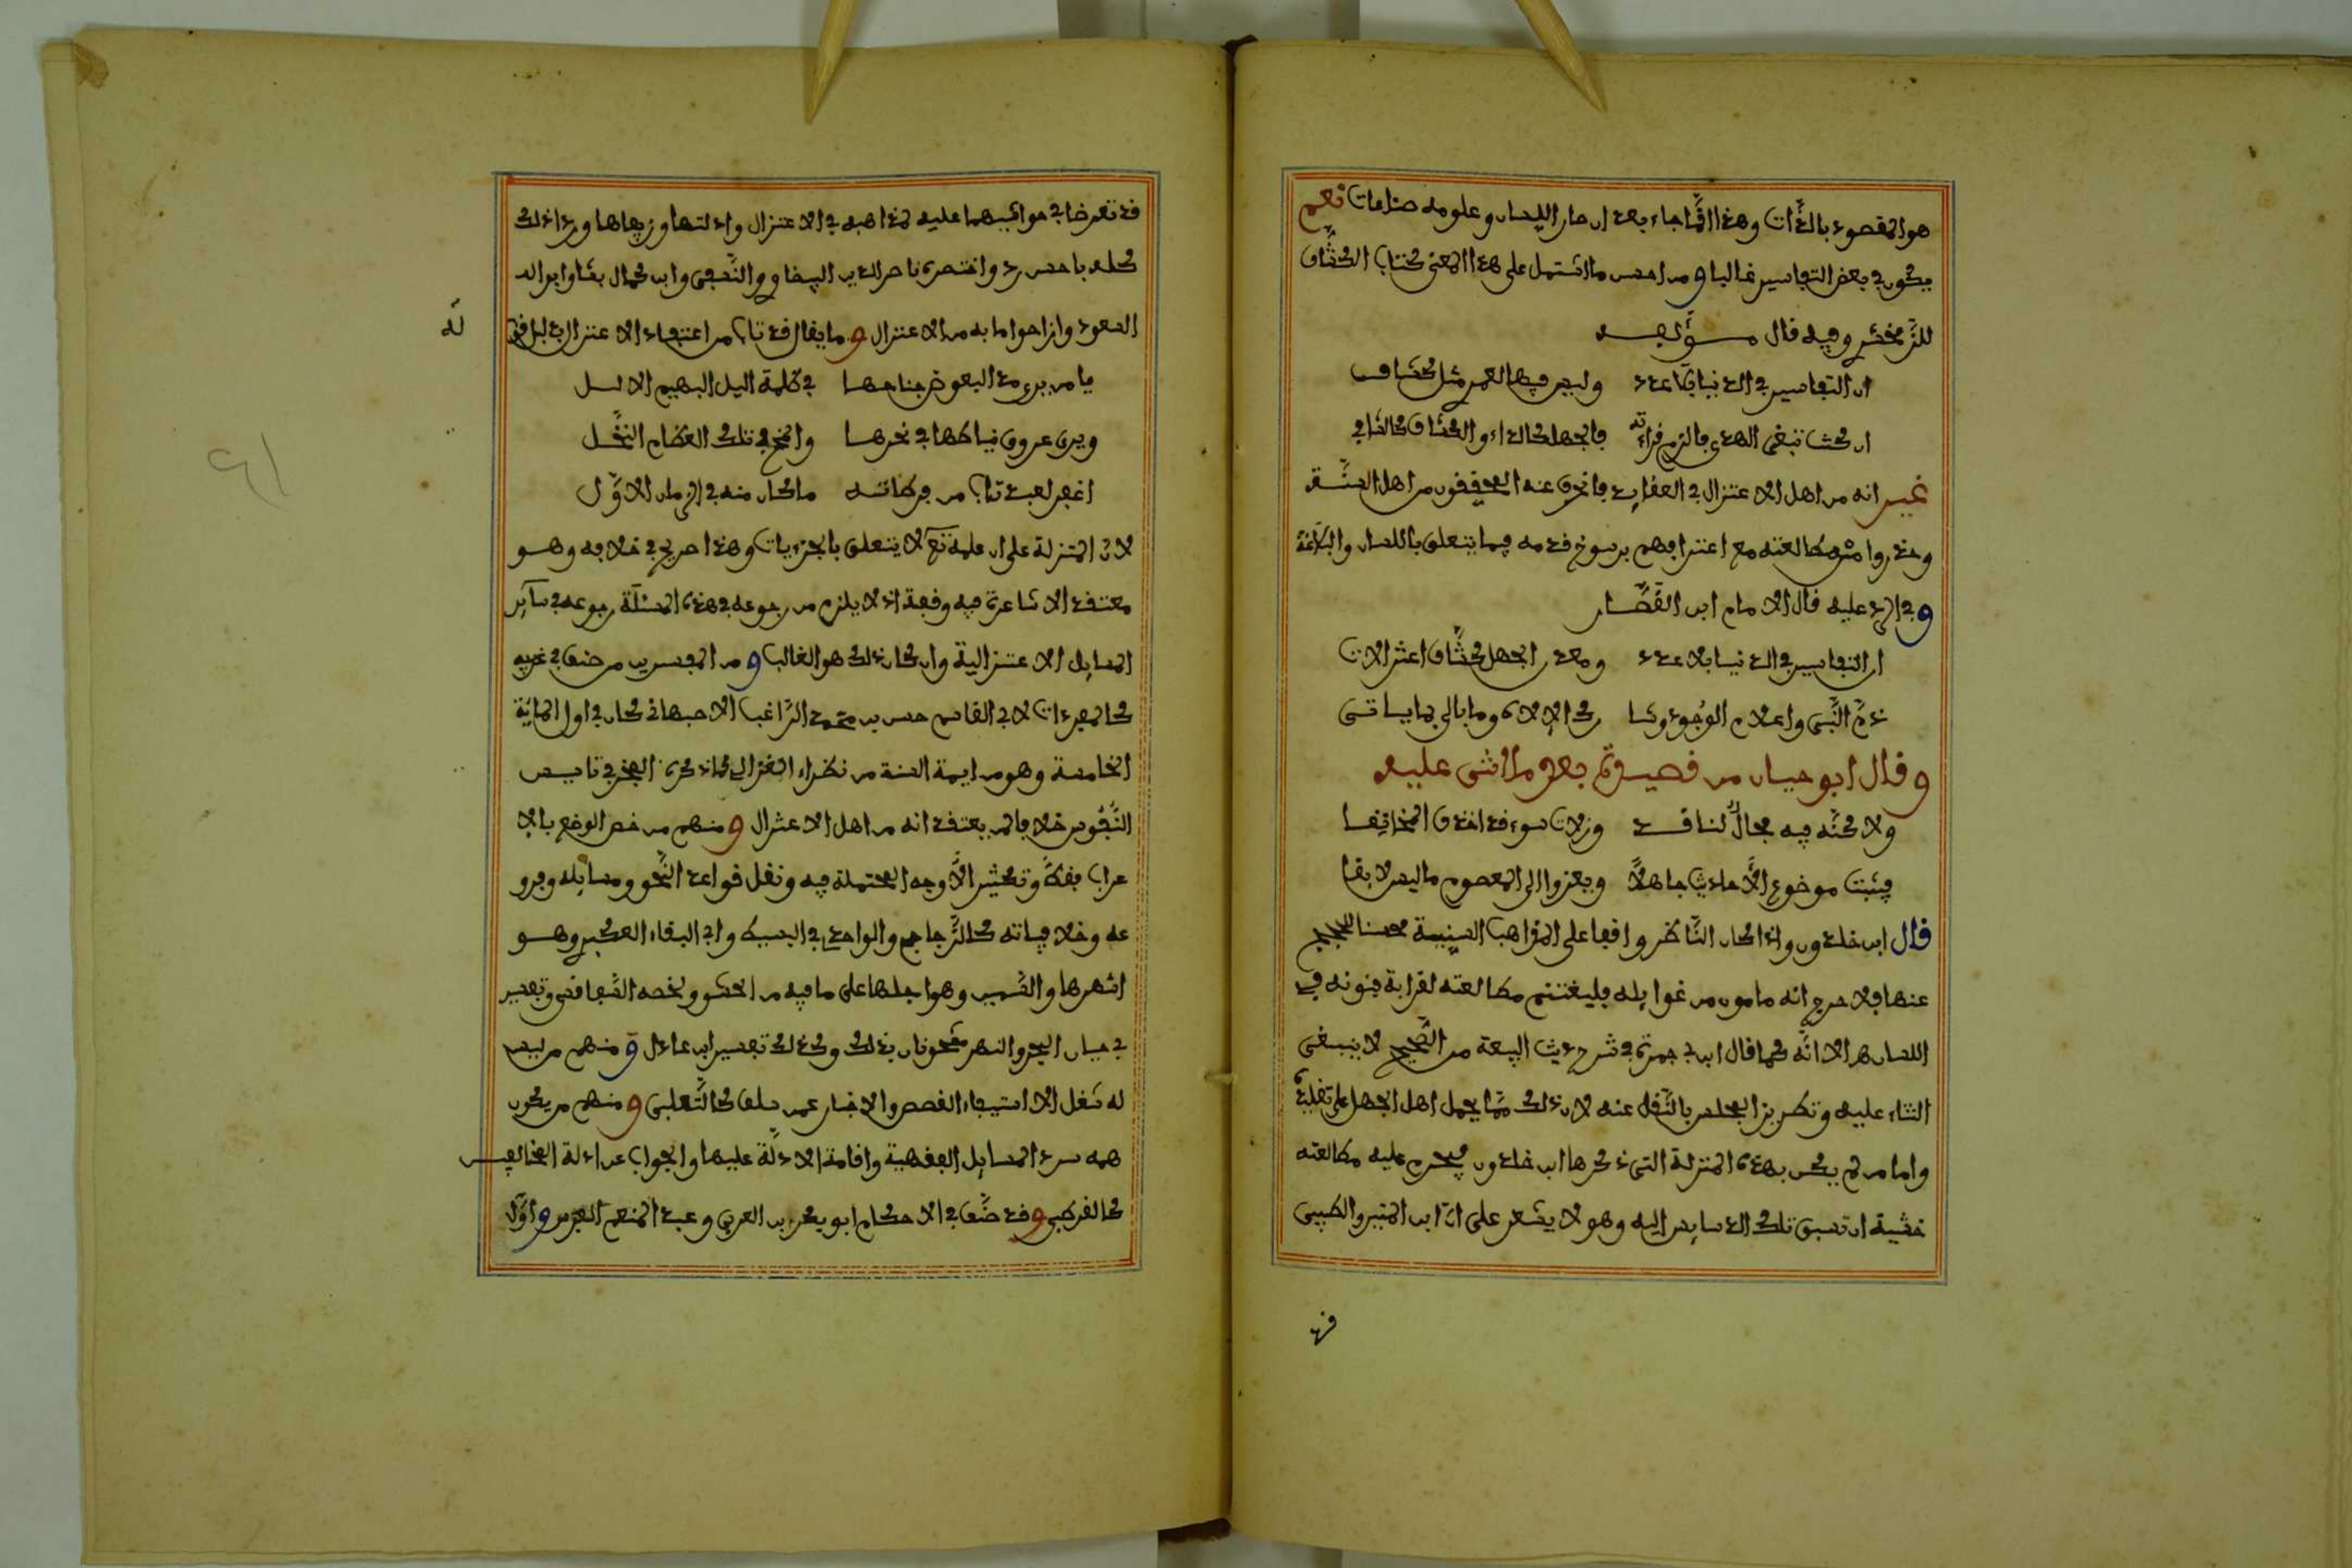 هو المقصود بالذّات وهذا انّما جاء بعد ان صار اللسان وعلومه صناعات نعم
يكون في بعض التفاسير غالبا ومن احسن ما اشتمل على هذا المعنى كتاب الكشّاف
للزّمخشري وفيه قال مؤلفه
ان التفاسير في الدنيا بلا عدد وليس فيها لعمري مثل كشاف
ان كنت تبغي الهدى فالزم قراءته فالجهل كالداء والكشاف كالشافي
غير انه من اهل الاعتزال في العقايد فانحرف عنه المحققون من اهل السّنة
وحذروا من مطالعته مع اعترافهم برسوخ قدمه فيما يتعلق باللسان والبلاغة
وفي الرد عليه قال الامام ابن القصّار
ان التفاسير في الدنيا بلا عدد ومعدن الجهل كشّاف
ذمّ النّبي واعلام الوجود وما
وقال ابو حيان من قصيدته بعد ما اثنى عليه
ولاكنّه فيه مجالٌ لناقد وزلات سوء قد اخذن المخانقا
فيثبت موضوع الأحاديث جاهلاً ويعزوا الى المعصوم ما ليس لايقا
قال ابن خلدون واذا كان النّاظر واقفا على المذاهب السنية محسنا للحجاج
عنها فلا حرج انه مامون من غوايله فليغتنم مطالعته لغرابة فنونه في
اللسان هـ الا انّه كما قال ابن ابي جمرة في شرح حديث البيعة من الصّحيح لا ينبغي
الثناء عليه وتطريز المجلس بالنّقل عنه لان ذلك ممّا يحمل اهل الجهل على تقليده
واما من لم يكن بهذه المنزلة التي ذكرها ابن خلدون فيحرم عليه مطالعته
خشية ان تسبق تلك الدسايس اليه وهو لا يشعر على انّ ابن المنير والطيبي
قد
قد تعرضا في حواشيهما عليه لمذاهبه في الاعتزال وادلتها وزيفاها وردا ذلك
كله باحسن رد واختصره ناصر الدين البيضاوي والنّسفي وابن كمال باشا وابو
السعود وازاحوا ما به من الاعتزال وما يقال قد تاب من اعتقاد الاعتزال بدليل قوله
له
يا من يرى مد البعوض جناحها في ظلمة اليل البهيم الاليل
ويرى عروق نياطها في نحرها والمخ في تلك العظام النحّل
اغفر لعبد تاب من فرطاته ما كان منه في الزمان الاوّل
لانّ المعتزلة على ان علمه تعلى لا يتعلق بالجزئيات وهذا صريح في خلافه وهو
معتقد الاشاعرة فيه وقفة اذ لا يلزم من رجوعه في هذه المسئلة رجوعه في ساير
المسايل الاعتزالية وان كان ذلك هو الغالب ومن المفسرين من صنف في غريبه
كالمفردات لابي القاسم حسن بن محمد الرّاغب الاصبهاني كان في اول الماية
الخامسة وهو من ايمة السنة من نظراء الغزالي كما ذكره الفخر في تاسيس
التّقديس خلافا لمن يعتقد انه من اهل الاعتزال ومنهم من خص الوضع بالا
عراب فقط وتكثير الأوجه المحتملة فيه ونقل قواعد النّحو ومسايله وفرو
عه وخلافياته كالزّجاج والواحدي في البسيط وابي البقاء العكبري وهو
اشهرها والسّمين وهو اجلها على ما فيه من الحشو ولخصه السّفاقسي وتفسير
ابي حيان البحر والنهر مشحونان بذلك وكذلك تفسير ابن عادل ومنهم من ليس
له شغل الا استيفاء القصص والاخبار عمن سلف كالثّعلبي ومنهم من يكون
همه سرد المسايل الفقهية واقامة الادلّة عليها والجواب عن ادلة المخالفين
كالقرطبي وقد صنّف في الاحكام ابو بكر بن العربي وعبد المنعم بن الفرس واوّل